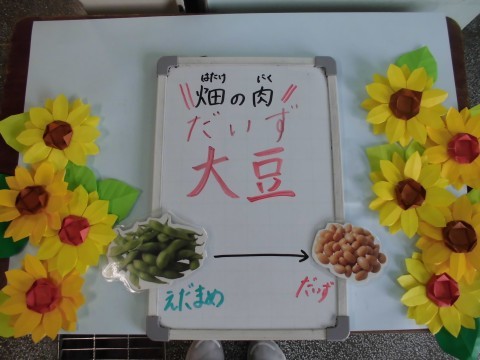 はたけ にく
\\畑の肉//
だいず
大豆
えだまめ
だいず